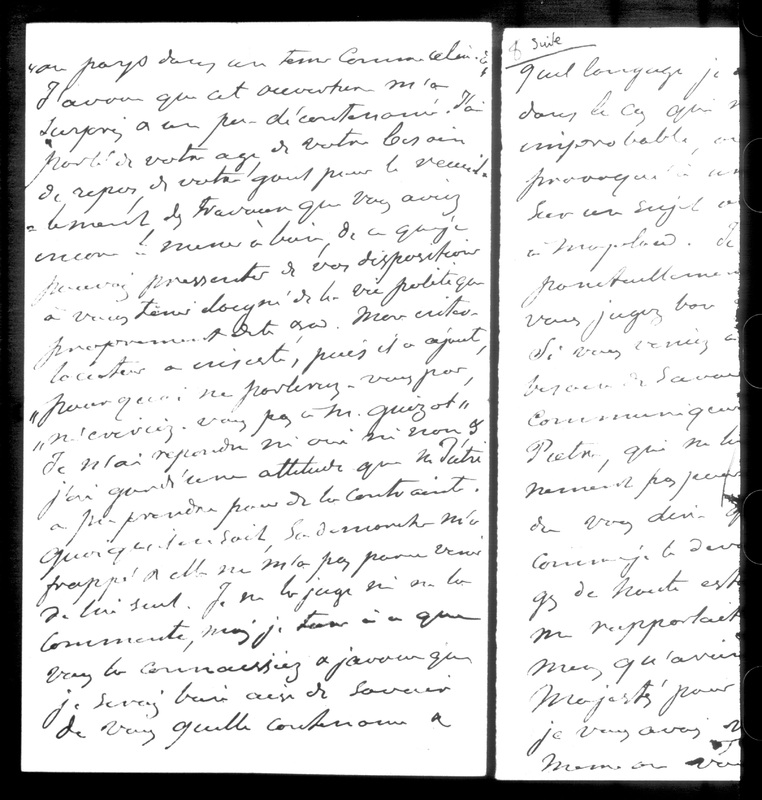 "au pays dans un tems comme celui-ci"
J'avoue que cet ouverture m'a
surpris & un peu décontenancé. J'ai
parlé de votre age de votre besoin
de repos, de votre gout pour le recueil-
-lement, des travaux que vous aviez
encore à mener à bien, de ce que je
pouvais pressentir de vos dispositions
à vous tenir éloigné de la vie politique
proprement dite &a. Mon inter-
locuteur a insisté, puis il a ajouté,
"pourquoi ne parleriez-vous pas,
"n'écririez-vous pas à M. Guizot"
Je n'ai répondu ni oui ni non &
j'ai gardé une attitude que M. Piétri
a pu prendre pour de la contrainte.
Quoiqu'il en soit, sa démarche m'a
frappé & elle ne m'a pas parue venir
de lui seul. Je ne la juge ni ne la
commente, mais je tiens à ce que
vous la connaissiez & j'avoue que
je serais bien aise de savoir
de vous quelle contenance &
8 suite
quel langage je
dans le cas, qui
improbable, ou
provoqué à un
sur un sujet
à
ponctuellement
vous jugez bon
Si vous veniez à
besoin de savoir
communiquer
Pietri, qui ne
nement pas
de vous dire
comme je le
ges de haute
me rapportait
mais qu'
Majesté pour
je vous avais
même ou